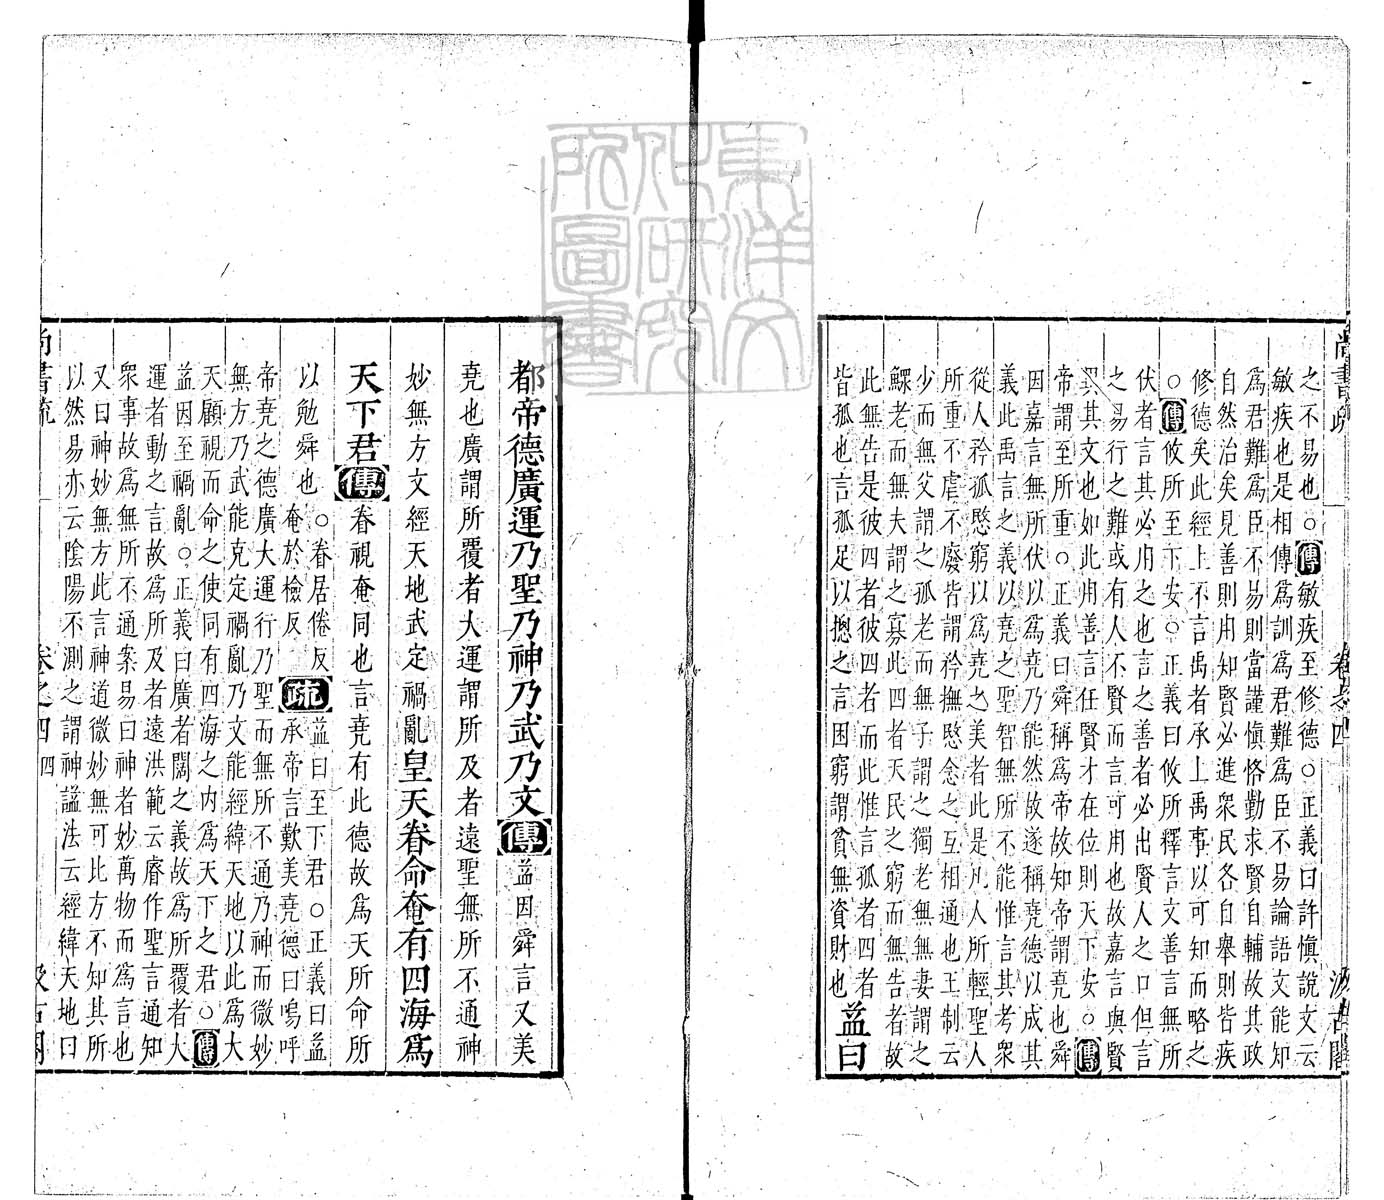 尚書疏
卷之四
汲古閣
之不易也○傳敏疾至修德○正義曰許愼說文云
敏疾也是相傳爲訓爲君難爲臣不易論語文能知
爲君難爲臣不易則當謹愼恪勤求賢自輔故其政
自然治矣見善則用知賢必進衆民各自舉則皆疾
修德矣此經上不言禹者承上禹事以可知而略之
○傳攸所至下安○正義曰攸所釋言文善言無所
伏者言其必用之也言之善者必出賢人之口但言
之易行之難或有人不賢而言可用也故嘉言與賢
異其文也如此用善言任賢才在位則天下安○傳
帝謂至所重○正義曰舜稱爲帝故知帝謂堯也舜
因嘉言無所伏以爲堯乃能然故遂稱堯德以成其
義此禹言之義以堯之聖智無所不能惟言其考衆
從人矜孤愍窮以爲堯之美者此是凡人所輕聖人
所重不虐不廢皆謂矜撫愍念之互相通也王制云
少而無父謂之孤老而無子謂之獨老無無妻謂之
鰥老而無夫謂之寡此四者天民之窮而無告者故
此無告是彼四者彼四者而此惟言孤者四者
皆孤也言孤足以摠之言困窮謂貧無資財也 益曰
都帝德廣運乃聖乃神乃武乃文傳益因舜言又美
堯也廣謂所覆者大運謂所及者遠聖無所不通神
妙無方文經天地武定禍亂皇天眷命奄有四海爲
天下君傳眷視奄同也言堯有此德故爲天所命所
以勉舜也○眷居倦反
奄於檢反
疏益曰至下君○正義曰益
承帝言歎美堯德曰嗚呼
帝堯之德廣大運行乃聖而無所不通乃神而微妙
無方乃武能克定禍亂乃文能經緯天地以此爲大
天顧視而命之使同有四海之内爲天下之君○傳
益因至禍亂○正義曰廣者闊之義故爲所覆者大
運者動之言故爲所及者遠洪範云睿作聖言通知
衆事故爲無所不通案易曰神者妙萬物而爲言也
又曰神妙無方此言神道微妙無可比方不知其所
以然易亦云陰陽不測之謂神謚法云經緯天地曰
尚書疏
卷之四
四
汲古閣
東洋文
化研究
所圖書